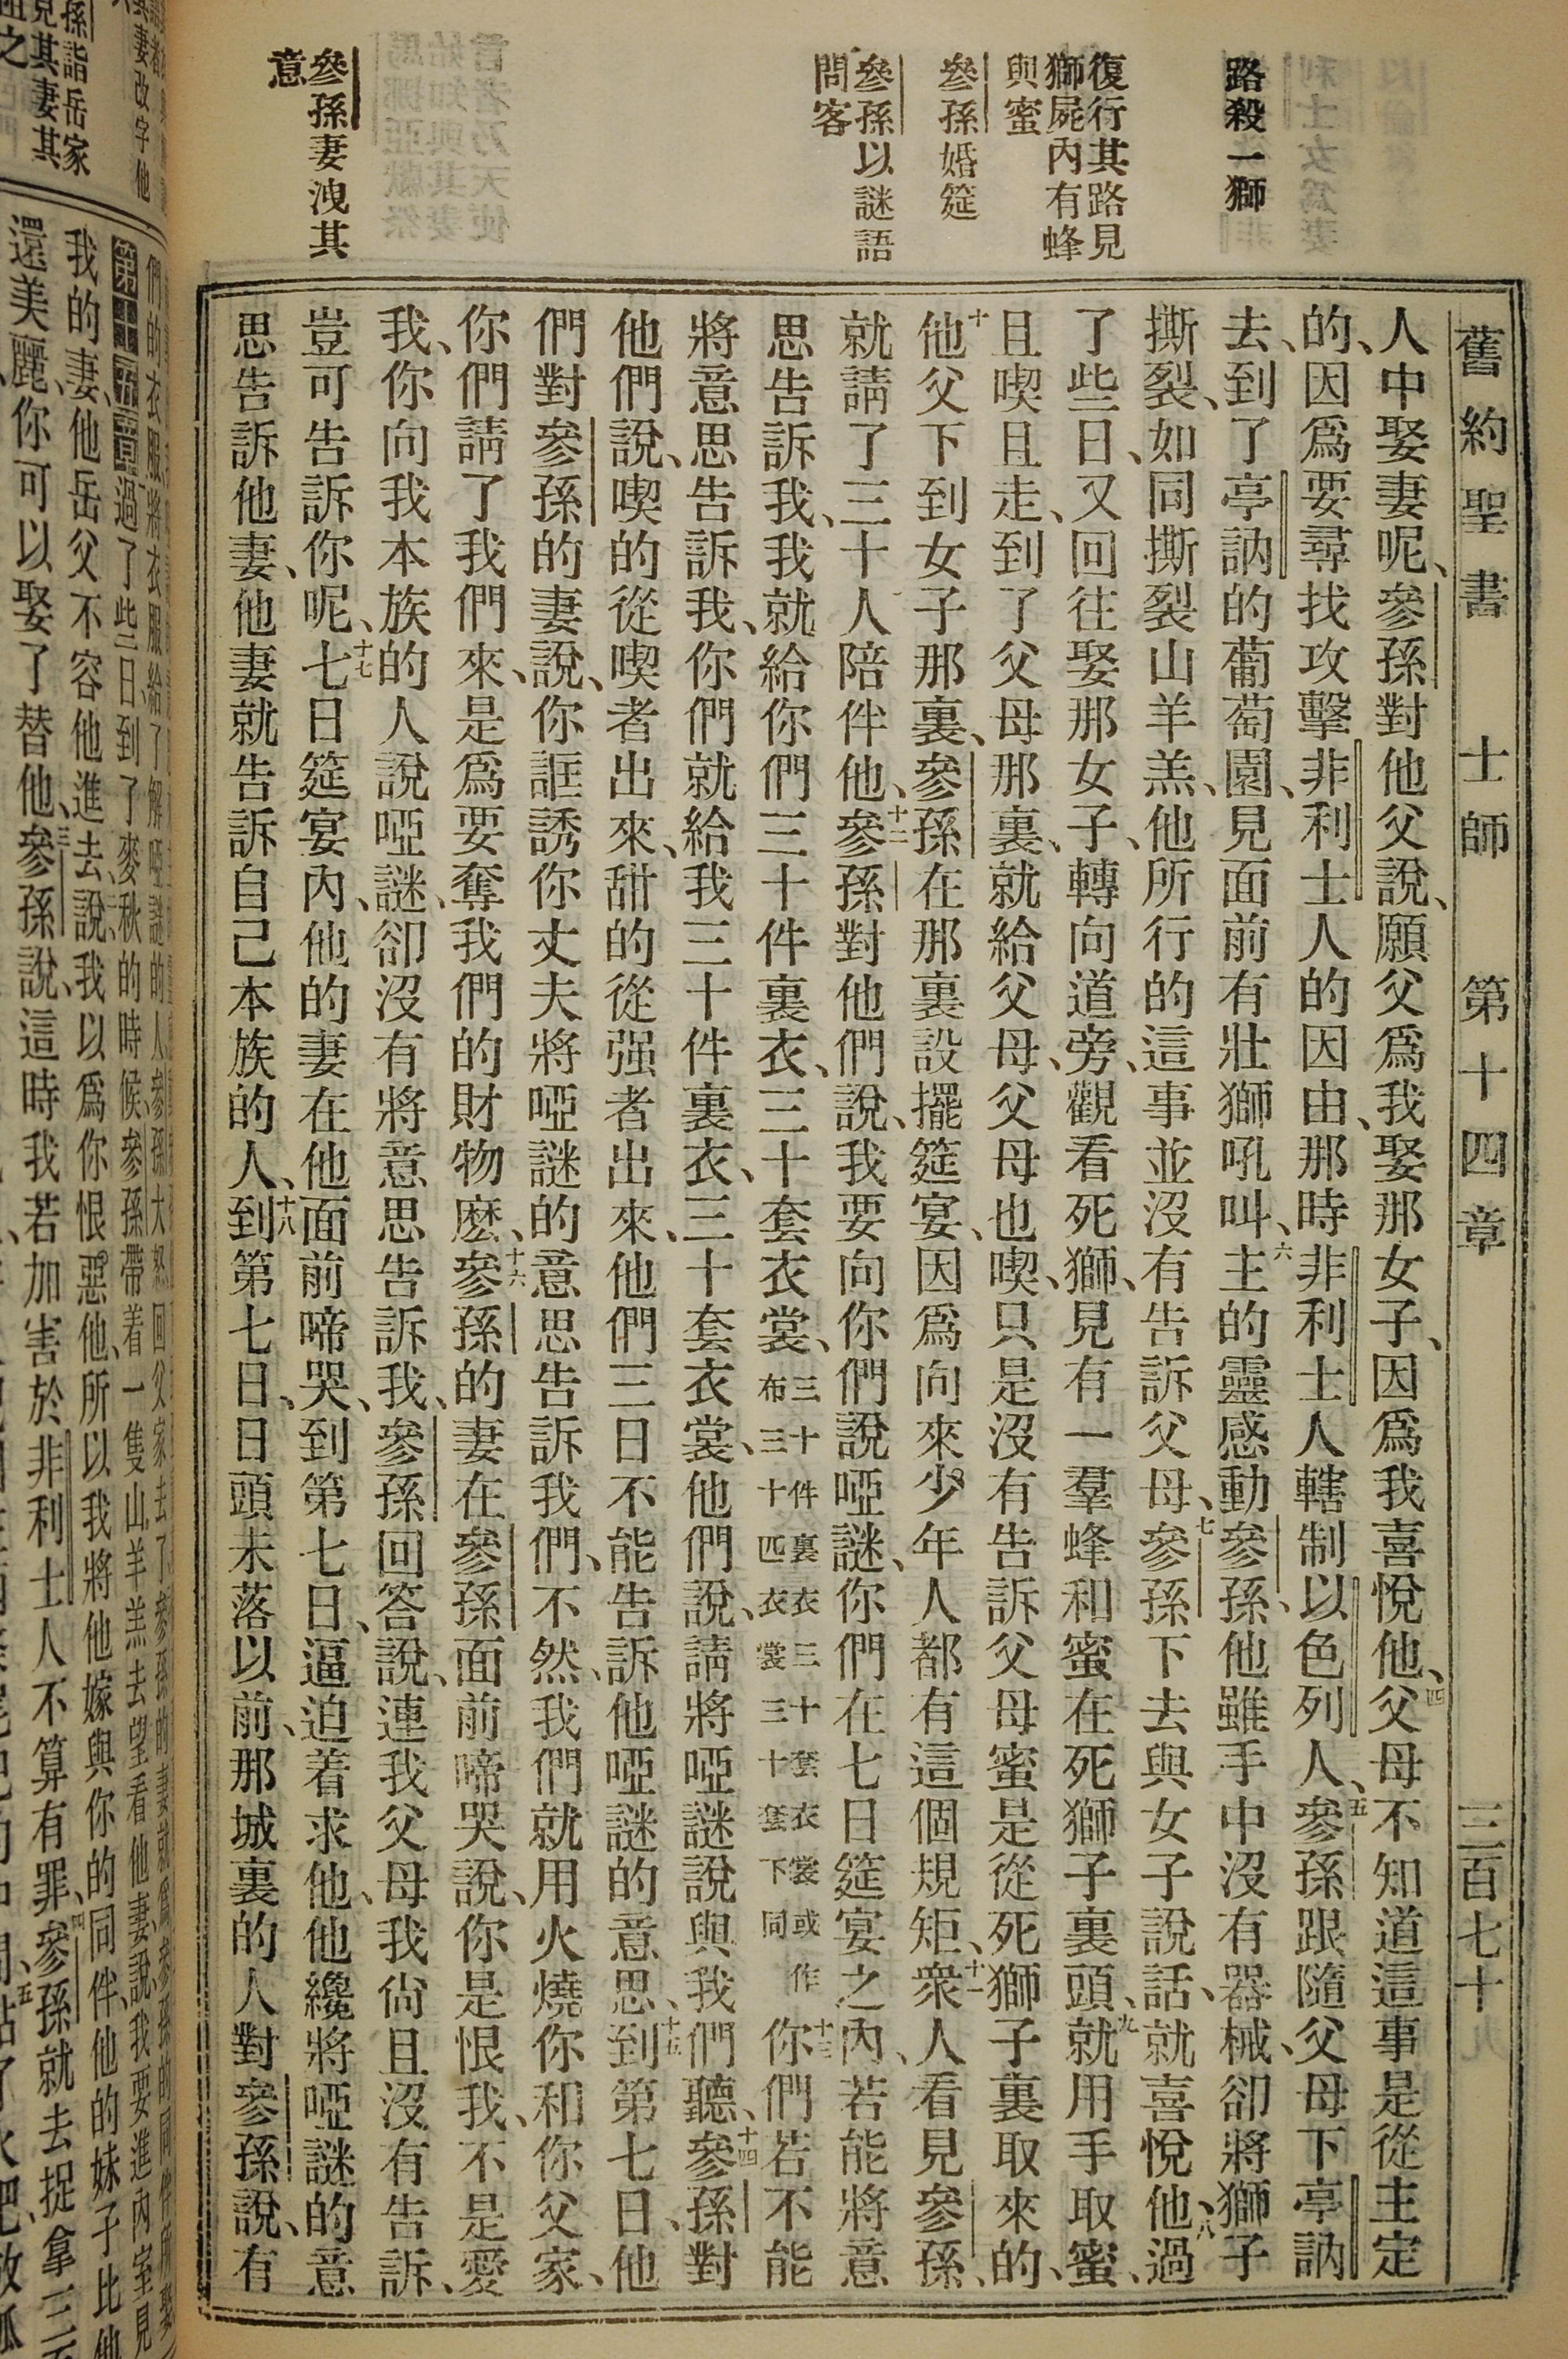 舊約聖書 士師 第十四章 三百七十九
路殺一獅
復行其路見
獅屍內有蜂
與蜜
參孫婚筵
參孫以謎語
問客
參孫妻洩其
意
人中娶妻呢、參孫對他父說、願父爲我娶那女子、因爲我喜悅他、四父母不知道這事是從主定
的、因爲要尋找攻擊非利士人的因由、那時非利士人轄制以色列人、五參孫跟隨父母下亭訥
去、到了亭訥的葡萄園、見面前有壯獅吼叫、六主的靈感動參孫、他雖手中沒有器械、卻將獅子
撕裂、如同撕裂山羊羔、他所行的這事並沒有告訴父母、七參孫下去與女子說話、就喜悅他、八過
了些日、又回往娶那女子、轉向道旁、觀看死獅、見有一羣蜂和蜜在死獅子裏頭、九就用手取蜜、
且喫且走、到了父母那裏、就給父母、父母也喫、只是沒有告訴父母蜜是從死獅子裏取來的、
十他父下到女子那裏、參孫在那裏設擺筵宴、因爲向來少年人都有這個規矩、十一衆人看見參孫、
就請了三十人陪伴他、十二參孫對他們說、我要向你們說啞謎、你們在七日筵宴之內、若能將意
思告訴我、我就給你們三十件裏衣、三十套衣裳、三十件裏衣三十套衣裳或作三十匹布三十套衣裳下同十三你們若不能
將意思告訴我、你們就給我三十件裏衣、三十套衣裳、他們說、請將啞謎說與我們聽、十四參孫對
他們說、喫的從喫者出來、甜的從强者出來、他們三日不能告訴他啞謎的意思、十五到第七日、他
們對參孫的妻說、你誆誘你丈夫將啞謎的意思告訴我們、不然、我們就用火燒你和你父家、
你們請了我們來、是爲要奪我們的財物麽、十六參孫的妻在參孫面前啼哭說、你是恨我、不是愛
我、你向我本族的人說啞謎、卻沒有將意思告訴我、參孫回答說、連我父母我尙且沒有告訴、
豈可告訴你呢、十七七日筵宴內、他的妻在他面前啼哭、到第七日、逼迫着求他、他纔將啞謎的意
思告訴他妻、他妻就告訴自己本族的人、十八到第七日、日頭未落以前、那城裏的人對參孫說、有
孫詣岳家
見其妻其
第十五章過了些日、到了麥秋的時候、參孫帶着一隻山羊羔去望看他妻、說、我要進內室見
我的妻、他岳父不容他進去、說、我以爲你恨惡他、所以我將他嫁與你的同伴、他的妹子比他
還美麗、你可以娶了替他、參孫說、這時我若加害於非利士人不算有罪、參孫就去捉拿三百